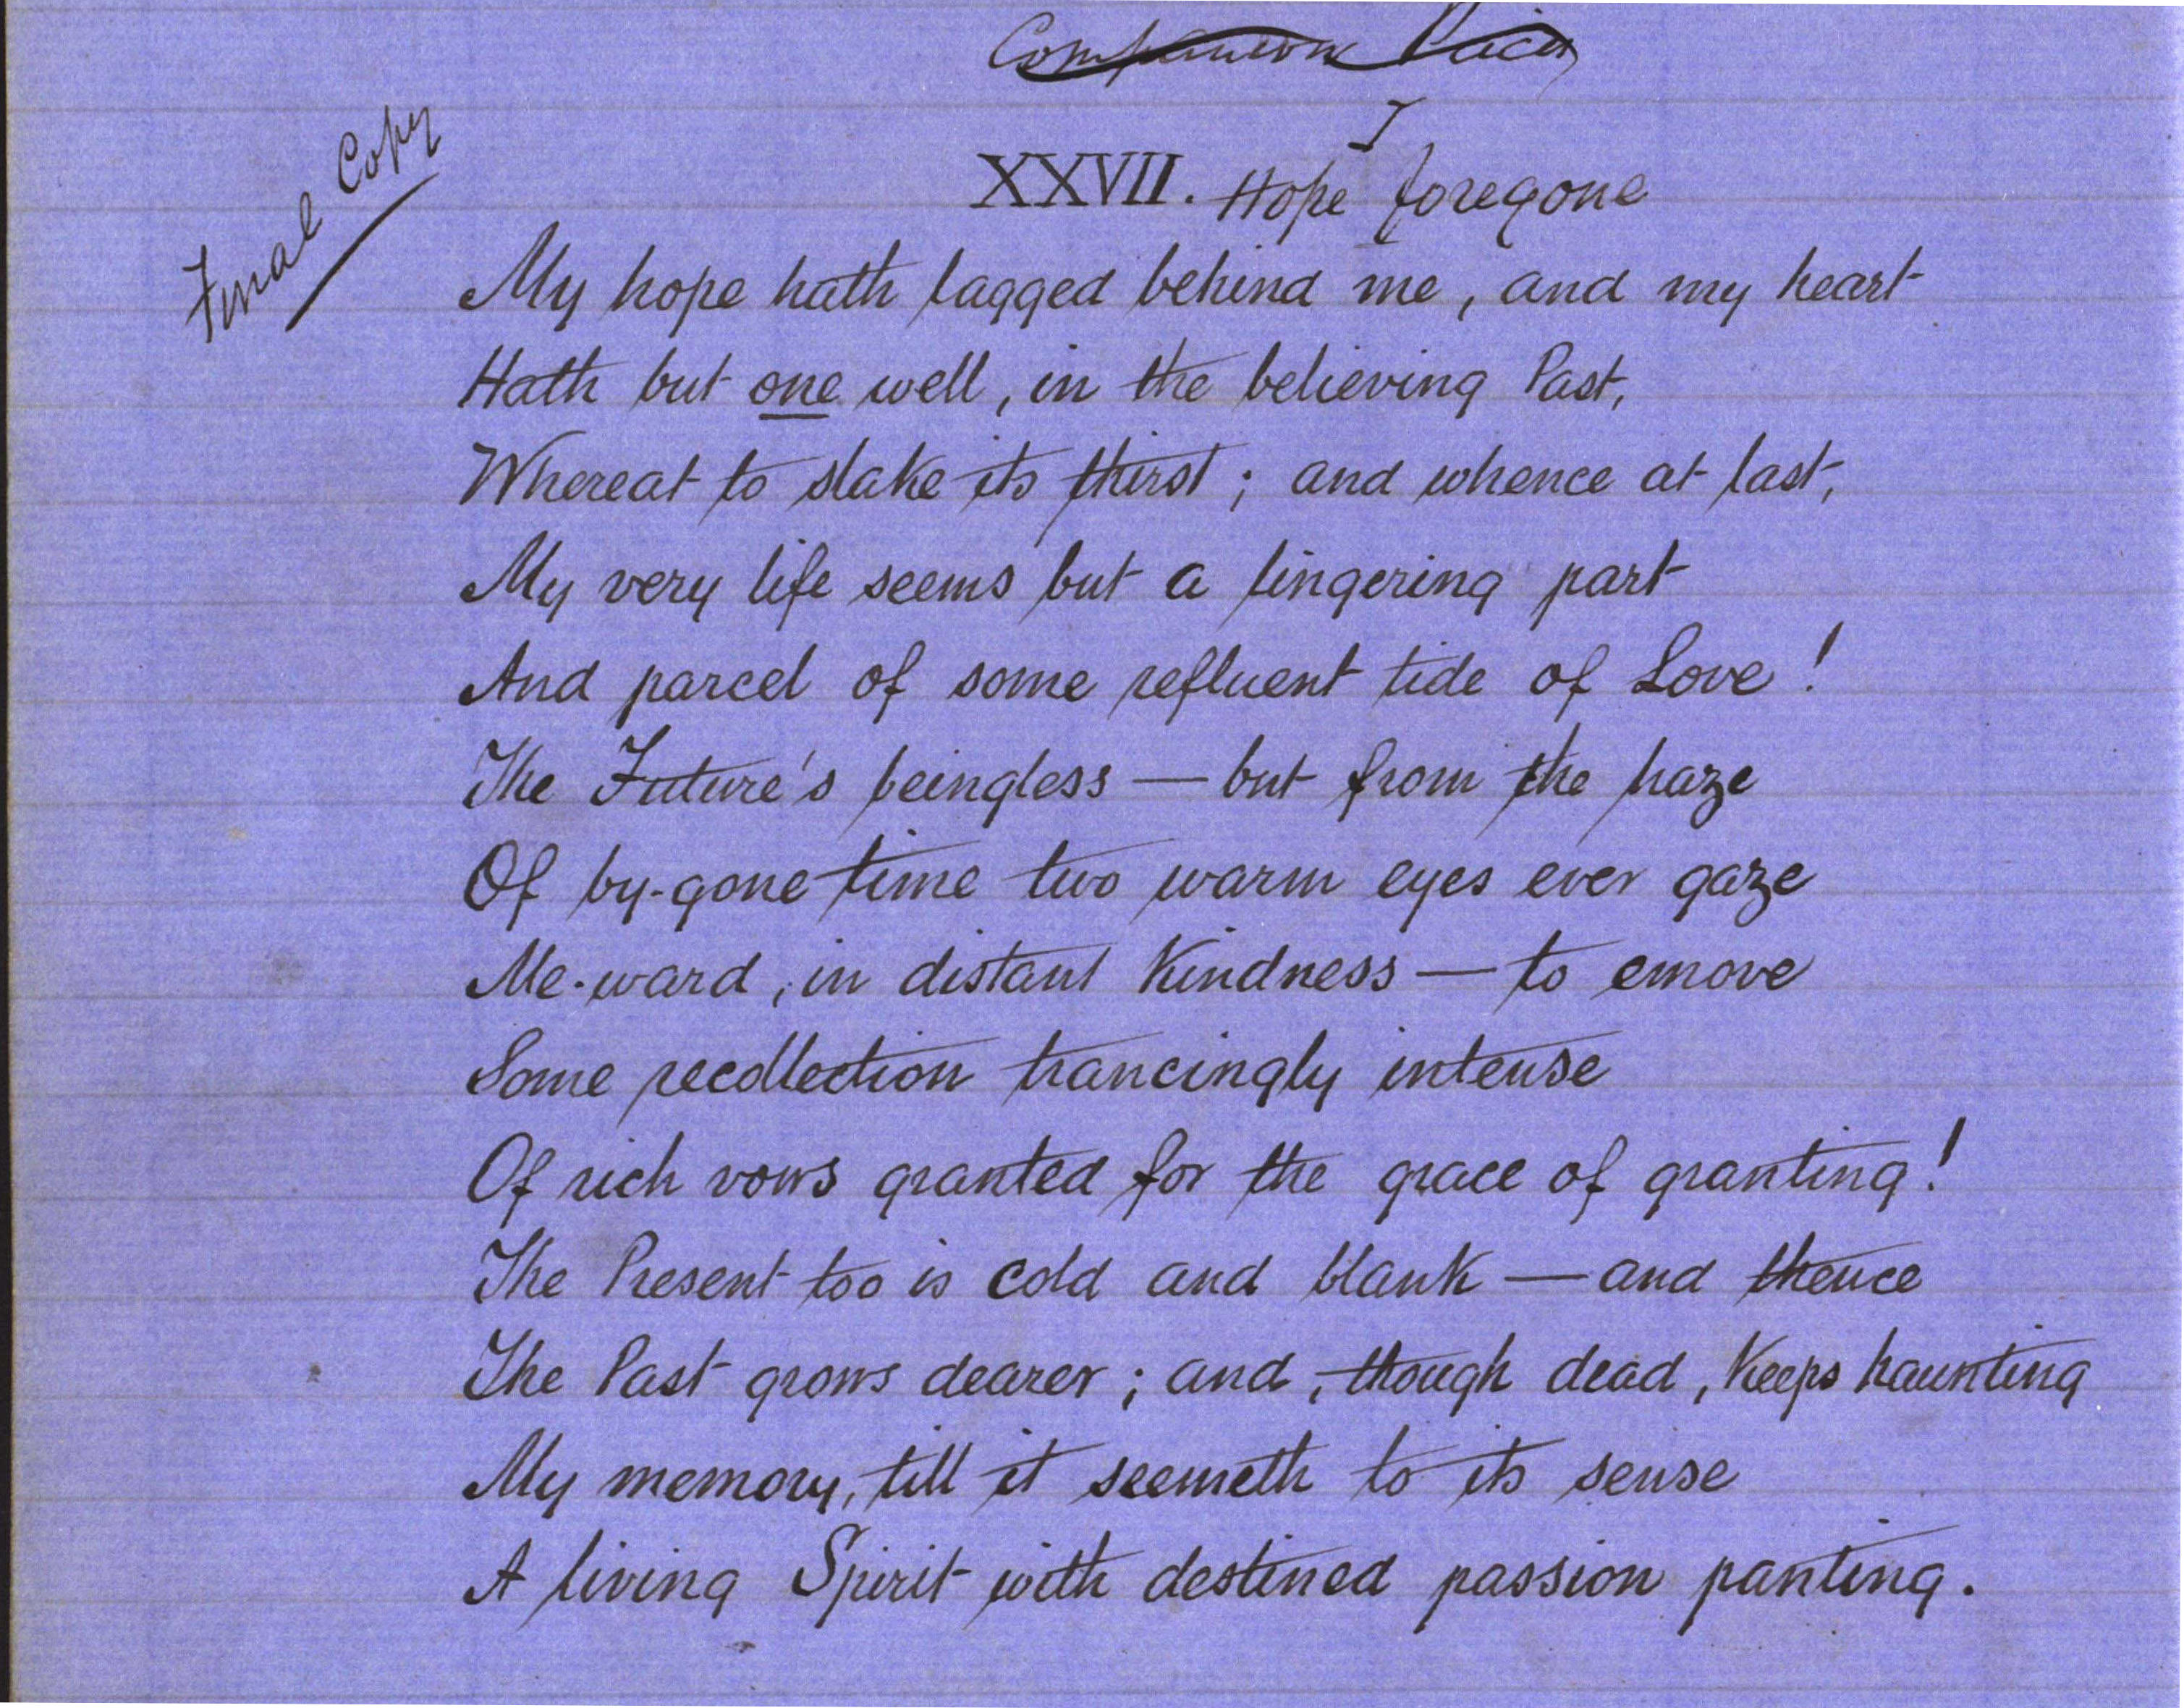 Companion Pieces
Final Copy
I
XXVII. Hope foregone
My hope hath lagged behind me, and my heart
Hath but one well, in the believing Past,
Whereat to slake its thirst; and whence at last,
My very life seems but a lingering part
And parcel of some refluent tide of Love!
The Future's beingless — but from the haze
Of by-gone time two warm eyes ever gaze
Me-ward, in distant kindness — to emove
Some recollection trancingly intense
Of rich vows granted for the grace of granting!
The Present too is cold and blank — and thence
The Past grows dearer; and, though dead, keeps haunting
My memory, till it seemeth to its sense
A living Spirit with destined passion panting.